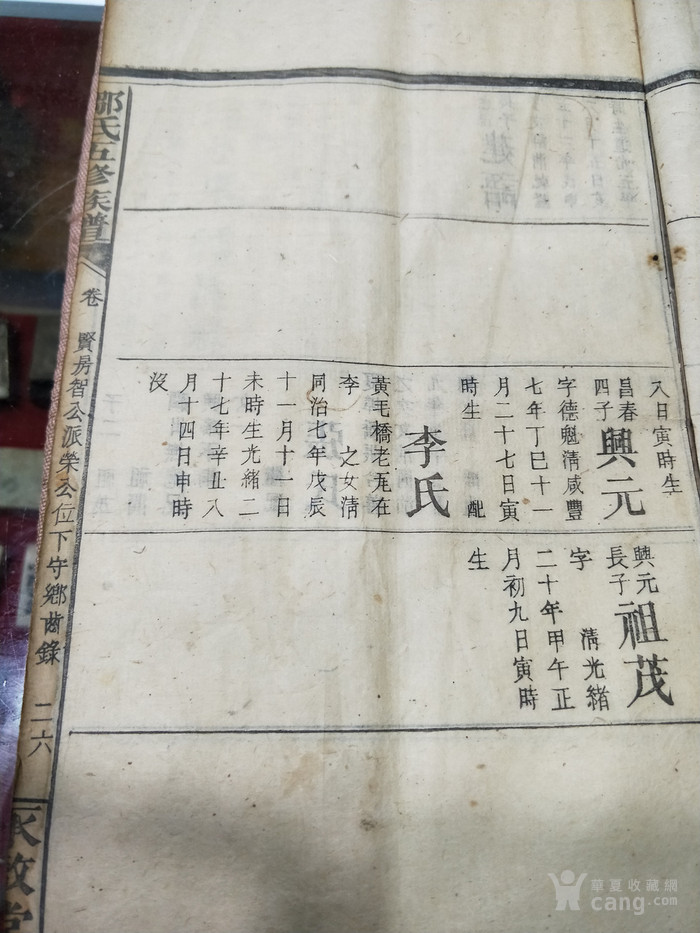 入日寅時生
昌春
四子
興元
字德魁清咸豐
七年丁巳十一
月二十七日寅
時生 配
李氏
黃毛橋老旡在
李 之女清
同治七年戊辰
十一月十一日
未時生光緒二
十七年辛丑八
月十四日申時
沒
興元
長子
祖茂
字 清光緒
二十年甲午正
月初九日寅時
生
鄒氏五修族譜
卷 賢房智公派榮公位下守鄉齒錄
二六
敘堂
華夏收藏網
cang.com